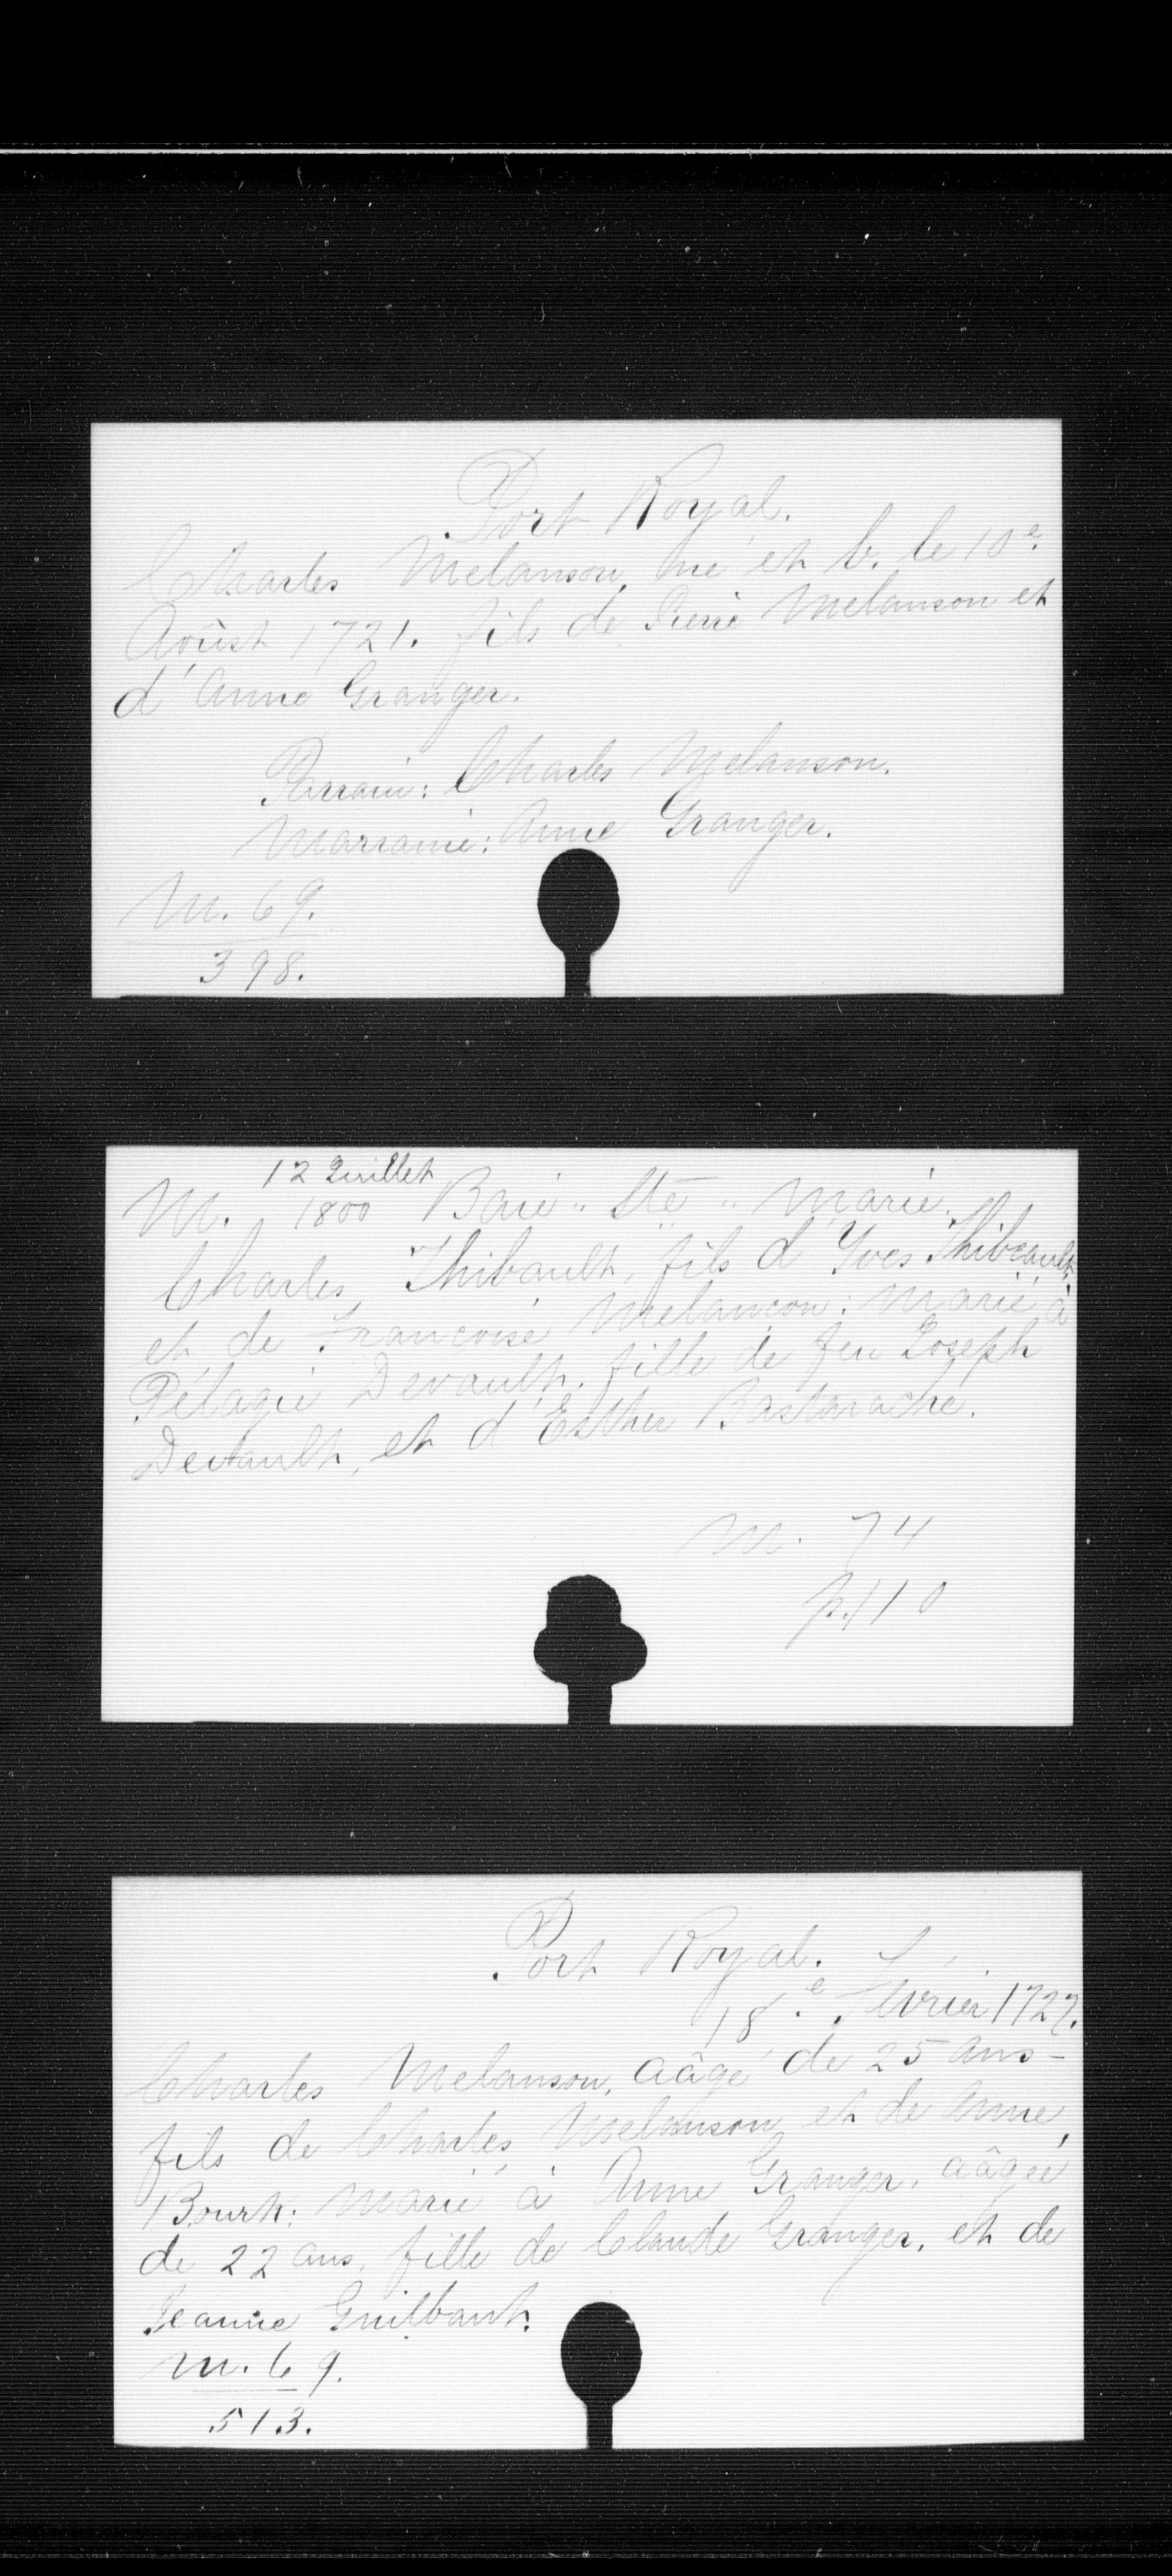 Port Royal.
Charles Melanson, né et b. le 10e.
Aoûst 1721. fils de Pierre Melanson et
d'Anne Granger.
Parrain: Charles Melanson.
Marraine: Anne Granger.
M. 69.
398.
12 Juillet
M. 1800 Baie " Ste " Marie.
Charles Thibault, fils d'Yves Thibeault,
et de Françoise Melançon: marié à
Pélagie Devault, fille de feu Joseph
Devault, et d'Esther Bastarache.
M. 74
p. 110
Port Royal.
18.e Février 1727.
Charles Melanson, aâgé de 25 ans-
fils de Charles Melanson et de Anne
Bourk: marié à Anne Granger, aâgée
de 22 ans, fille de Claude Granger, et de
Jeanne Guilbaut.
M. 69.
513.